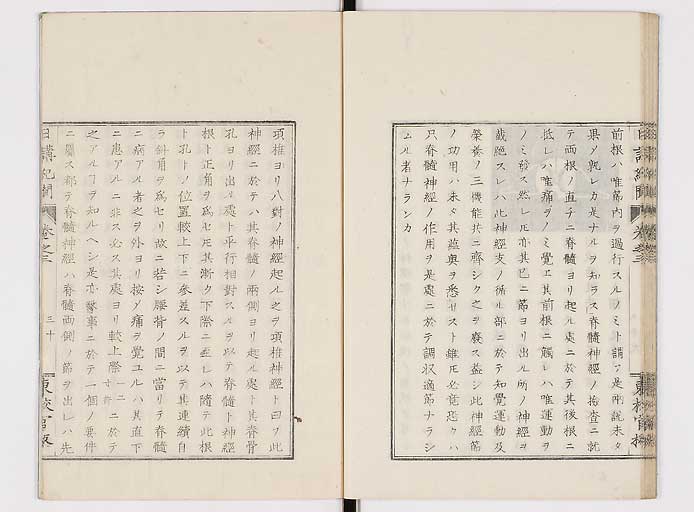 前根ハ唯節内ヲ過行スルノミト謂フ是兩説未タ
果ノ孰レカ是ナルヲ知ラス脊髓神經ノ撿査ニ就
テ両根ノ直チニ脊髓ヨリ起ル處ニ於テ其後根ニ
抵レハ唯痛ヲノミ覺エ其前根ニ觸レハ唯運動ヲ
ノミ發ス然レ𪜈亦其已ニ節ヨリ出ル所ノ神經ヲ
截絶スレハ此神經支ノ循ル部ニ於テ知覺運動及
榮養ノ三機能共ニ齊シク之ヲ廢ス蓋シ此神經節
ノ功用ハ未タ其蘊奥ヲ悉セスト雖𪜈必竟恐クハ
只脊髓神經ノ作用ヲ是處ニ於テ調状適節ナラシ
ムル者ナランカ
項椎ヨリ八對ノ神經起ル之ヲ項椎神經ト曰フ此
神經ニ於テハ其脊髓ノ兩側ヨリ起ル處ト其脊骨
孔ヨリ出ル處ト平行相對スルヲ以テ脊髓ト神經
根ト正角ヲ爲セ𪜈其漸ク下際ニ至レハ隨テ此根
ト孔トノ位置較上下ニ參差スルヲ以テ其連續自
ラ斜角ヲ爲セリ故ニ若シ腰背ノ間ニ當リテ脊髓
ニ病アル者之ヲ外ヨリ按ノ痛ヲ覺ユルハ其直下
ニ患アルニ非ス必ス其處ヨリ較上際一二寸許ニ於テ
之アルヿヲ知ルヘシ是亦醫事ニ於テ一個ノ要件
ニ屬ス都テ脊髓神經ハ脊髓両側ノ節ヲ出レハ先
日講紀聞 卷之三 三十 東校官版